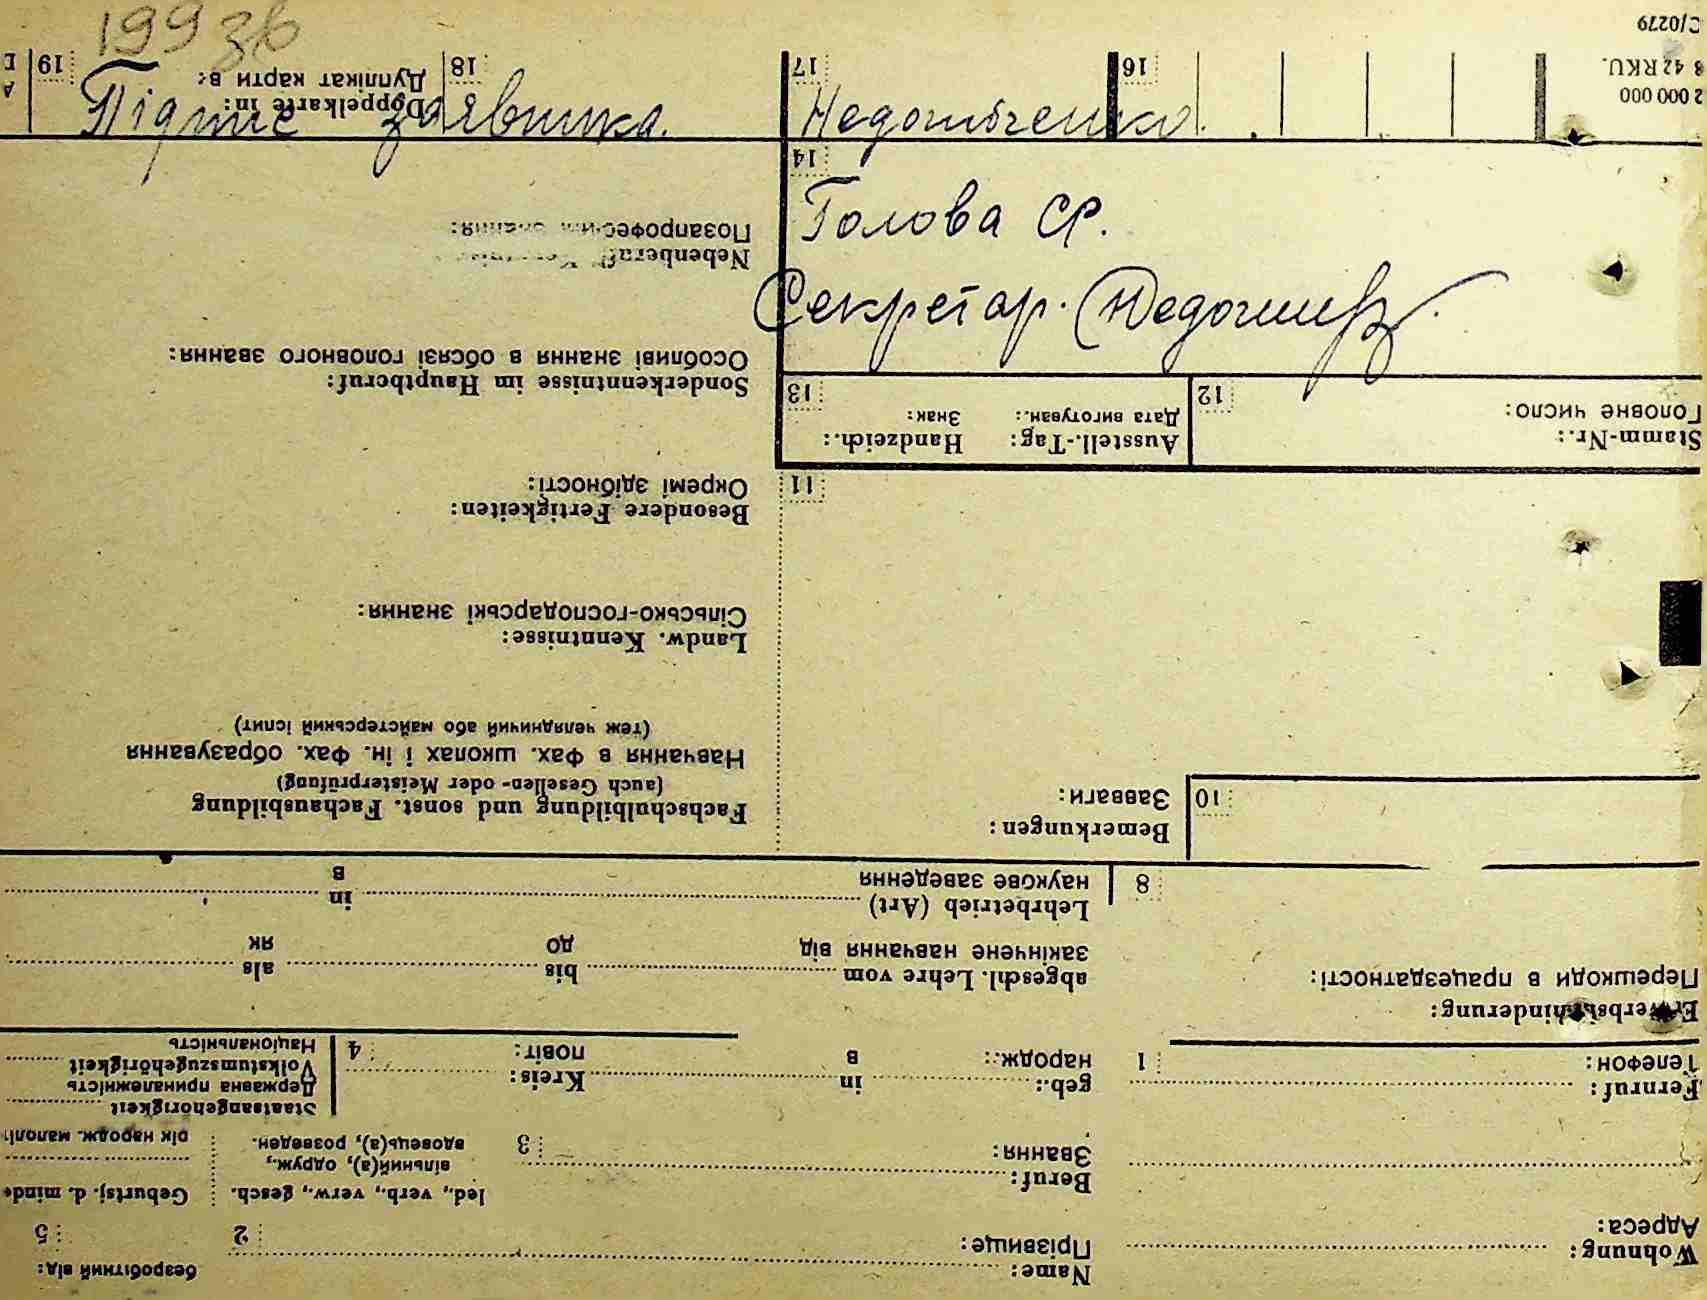 199 зв
Підпис заявника.
Голова СР.
Секретар.
безробітний від:
5
Name:
Прізвище:
2
Wohnung:
Адреса:
Geburtsj. d. mind
рік народж. малолі
led., verh., verw., gesch.
вільний(а), одруж.,
вдовець(а), розведен.
Beruf:
Звання:
3
Staatsangehörigkeit
Державна приналежність
Volkstumszugehörigkeit
Національність
4
geb.: in Kreis:
народж.: в повіт:
1
Fernruf:
Телефон:
abgeschl. Lehre vom bis als
закінчене навчання від до як
Lehrbetrieb (Art) in
наукове заведення в
8
Erwerbsbehinderung:
Перешкоди в працездатності:
Fachschulbildung und sonst. Fachausbildung
(auch Gesellen- oder Meisterprüfung)
Навчання в фах. школах і ін. фах. образування
(теж челядничий або майстерський іспит)
Bemerkungen:
Завваги:
10
Landw. Kenntnisse:
Сільсько-господарські знання:
Besondere Fertigkeiten:
Окремі здібності:
11
Sonderkenntnisse im Hauptberuf:
Особливі знання в обсязі головного звання:
Ausstell.-Tag: Handzeich.:
Дата виготуван.: Знак:
13
Stamm-Nr.:
Головне число:
12
Nebenberufl.
Позапрофес. знання:
14
Doppelkarte in:
Дуплікат карти в:
19
18
17
16
2 000 000
8 42 RKU.
C/0279